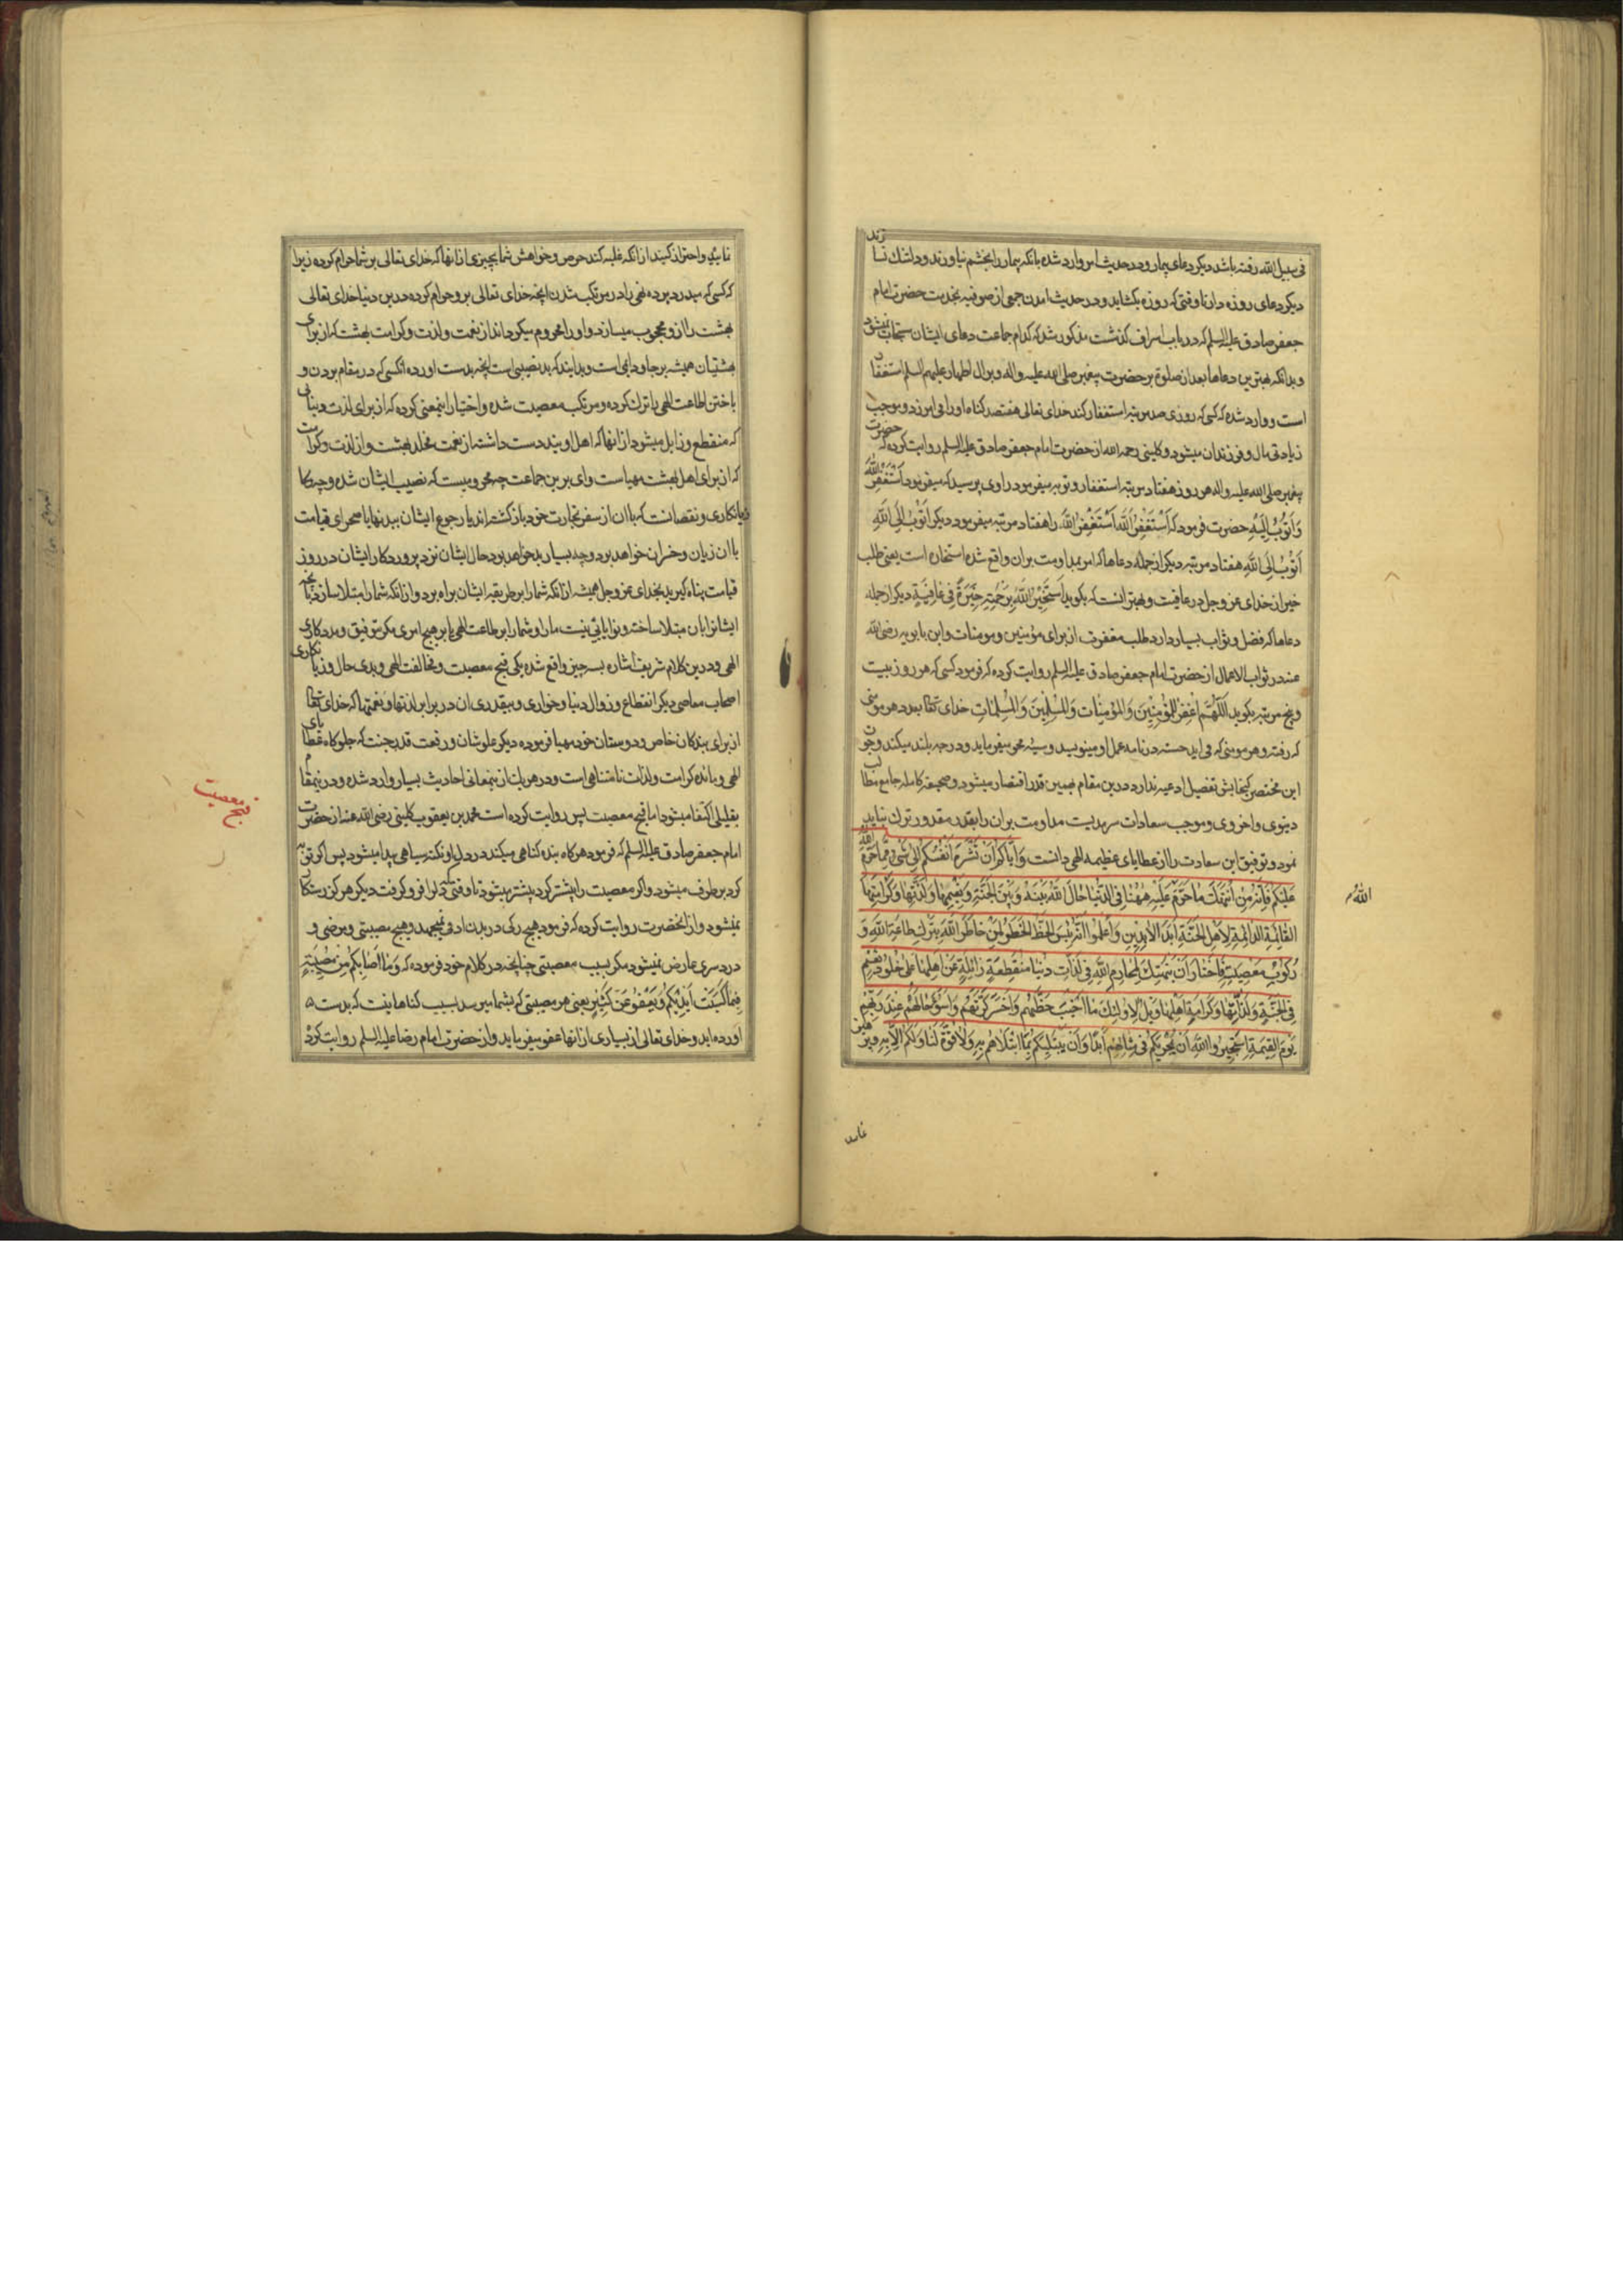 فی سبیل الله رفته باشد دیکر دعای بیمار و در حدیث امر وارد شده بانکه بیمار را بخشم نیاورند و دلتنك نسا
زند
دیکر دعای روزه دار تا وقتی که روزه بکشاید و در حدیث امدن جمعی از صوفیه بخدمت حضرت امام
جعفر صادق علیه السلم که در باب اسراف کذشت مذکور شد که کدام جماعت دعای ایشان مستجاب نمیشود
و بدانکه بهترین دعاها بعد از صلوة بر حضرت پیغمبر صلی الله علیه واله و برال اطهار علیهم السلم استغفا
است و وارد شده که کسی که روزی صد مرتبه استغفار کند خدای تعالی هفتصد کناه او را می امرزد و موجب
زیادتی مال و فرزندان میشود و کلینی رحمه الله از حضرت امام جعفر صادق علیه السلم روایت کرده که حضرت
پیغمبر صلی الله علیه واله هر روز هفتاد مرتبه استغفار و توبه میفرمود راوی پرسید که میفرمود اَسْتَغْفِرُ اللهَ
وَاَتُوبُ اِلَیْهِ حضرت فرمود که اَسْتَغْفِرُ اللهَ اَسْتَغْفِرُ اللهَ را هفتاد مرتبه میفرمود دیکر اَتُوبُ اِلَی اللهِ
اَتُوبُ اِلَی اللهِ هفتاد مرتبه دیکر از جمله دعاها که امر بمداومت بران واقع شده استخاره است یعنی طلب
خیر از خدای عز و جل در عافیت و بهتر انست که بکوید اَسْتَخیرُ اللهَ بِرَحْمَتِهِ خِیَرَةً فی عافِیَةٍ دیکر از جمله
دعاها که فضل و ثواب بسیار دارد طلب مغفرت از برای مؤمنین و مومنات و ابن بابویه رضی الله
عنه در ثواب الاعمال از حضرت امام جعفر صادق علیه السلم روایت کرده که فرمود کسی که هر روز بیست
و پنج مرتبه بکوید اَللّهُمَّ اغْفِرْ لِلْمُؤْمِنینَ وَالْمُؤْمِناتِ وَالْمُسْلِمینَ وَالْمُسْلِماتِ خدای تعا بعدد هر مومنی
که رفته و هر مومنی که می اید حسنه در نامه عمل او مینویسد و سیئه محو میفرماید و درجه بلند میکند و چون
این مختصر کنجایش تفصیل ادعیه ندارد درین مقام بهمین قدر اقتصار میشود و صحیفه کامله جامع مطا
لب
دینوی و اخروی و موجب سعادات سرمدیست مداومت بران را بقدر مقدور ترك نباید
نمود و توفیق این سعادت را از عطایای عظیمه الهی دانست وَاِیّاکُمْ اَنْ تَشْرَهَ اَنْفُسُکُمْ اِلی شَیْءٍ مِمّا حَرَّمَ اللهُ
عَلَیْکُمْ فَاِنَّهُ مَنِ انْتَهَكَ ما حَرَّمَ عَلَیْهِ ههُنا فِی الدُّنْیا حالَ اللهُ بَیْنَهُ وَبَیْنَ الْجَنَّةِ وَنَعیمِها وَلَذَّتِها وَکَرامَتِهَا
الْقائِمَةِ الدّائِمَةِ لِاَهْلِ الْجَنَّةِ اَبَدَ الْابِدینَ وَاعْلَمُوا اَنَّهُ بِئْسَ الْحَظُّ الْخَطَرُ لِمَنْ خاطَرَ اللهَ بِتَرْكِ طاعَةِ اللهِ وَ
رُکُوبِ مَعْصِیَتِهِ فَاخْتارَ اَنْ یَنْتَهِكَ مَحارِمَ اللهِ فی لَذّاتِ دُنْیا مُنْقَطِعَةٍ زائِلَةٍ عَنْ اَهْلِها عَلی خُلُودِ نَعیمٍ
فِی الْجَنَّةِ وَلَذّاتِها وَکَرامَةِ اَهْلِها وَیْلٌ لِاُولئِكَ ما اَخْیَبَ حَظَّهُمْ وَاَخْسَرَ کَرَّتَهُمْ وَاَسْوَءَ حالَهُمْ عِنْدَ رَبِّهِمْ
یَوْمَ الْقِیمَةِ اِسْتَجیرُوا اللهَ اَنْ یُجْرِیَکُمْ فی مِثالِهِمْ اَبَدًا وَاَنْ یَبْتَلِیَکُمْ بِمَا ابْتَلاهُمْ بِهِ وَلا قُوَّةَ لَنا وَلَکُمْ اِلّا بِهِ
الله
نمایید و احتراز کنید از انکه غلبه کند حرص و خواهش شما بچیزی از انها که خدای تعالی بر شما حرام کرده زیرا
که کسی که میدرد پرده نهی را در مرتکب شدن انچه خدای تعالی بر و حرام کرده درین دنیا خدای تعالی
بهشت را از و محجوب میسازد و او را محروم میکرداند از نعمت و لذت و کرامت بهشت که از برای
بهشتیان همیشه بر جا و دایمی است و بدانید که بد نصیبی است انچه بدست اورده انکسی که در مقام بردن و
باختن اطاعت الهی را ترك کرده و مرتکب معصیت شده و اختیار اینمعنی کرده که از برای لذت دنیائی
که منقطع و زایل میشود از انها که اهل اویند دست داشته از نعمت مخلد بهشت و از لذت و کرامت
که از برای اهل بهشت مهیاست وای برین جماعت چه محرومیست که نصیب ایشان شده و چه
زیانکاری و نقصانست که باان از سفر تجارت خود باز کشته اند یا رجوع ایشان بپنهایا صحرای قیامت
باان زیان و خسران خواهد بود و چه بسیار بد خواهد بود حال ایشان نزد پروردکار ایشان در روز
قیامت پناه کیرید بخدای عز و جل همیشه از انکه شما را بر طریقه ایشان براه برد و از انکه شما را مبتلا سازد بانچه
ایشانرا بان مبتلا ساخته و توانایی نیست ما را و شما را بر طاعت الهی یا بر هیچ امری مکر بتوفیق و مددکاری
الهی و درین کلام شریف اشاره بسه چیز واقع شده یکی قبح معصیت و مخالفت الهی و بدی حال و زیا
نکاری
اصحاب معاصی دیکر انقطاع و زوال دنیا و خواری و بیقدری ان در برابر لذتها و نعمتها که خدای تعا
از برای بندکان خاص و دوستان خود مهیا فرموده دیکر علو شان و رفعت قدر جنت که جلوکاه عطا
یای
الهی و مائده کرامت ولذات نامتناهی است و در هریك از ینمعانی احادیث بسیار وارد شده و در ینمقام
بقلیلی اکتفا میشود اما قبح معصیت پس روایت کرده است محمد بن یعقوب کلینی رضی الله عنه از حضرت
امام جعفر صادق علیه السلم که فرمود هرکاه بنده کناهی میکند در دل او نکته سیاهی پیدا میشود پس اکر توبه
کرد برطرف میشود و اکر معصیت را بیشتر کرد بیشتر میشود تا وقتی که دلرا فرو کرفت دیکر هرکز رستکار
نمیشود و از انحضرت روایت کرده که فرمود هیچ رکی در بدن ادمی نمیجهد و هیچ مصیبتی و مرضی و
درد سری عارض نمیشود مکر بسبب معصیتی چنانچه در کلام خود فرموده که وَما اَصابَکُمْ مِنْ مُصیبَةٍ
فَبِما کَسَبَتْ اَیْدیکُمْ وَیَعْفُو عَنْ کَثیرٍ یعنی هر مصیبتی که بشما میرسد بسبب کناهانیست که بدست
اورده اید و خدای تعالی از بسیاری از انها عفو میفرماید و از حضرت امام رضا علیه السلم روایت کرده
قبح معصیت